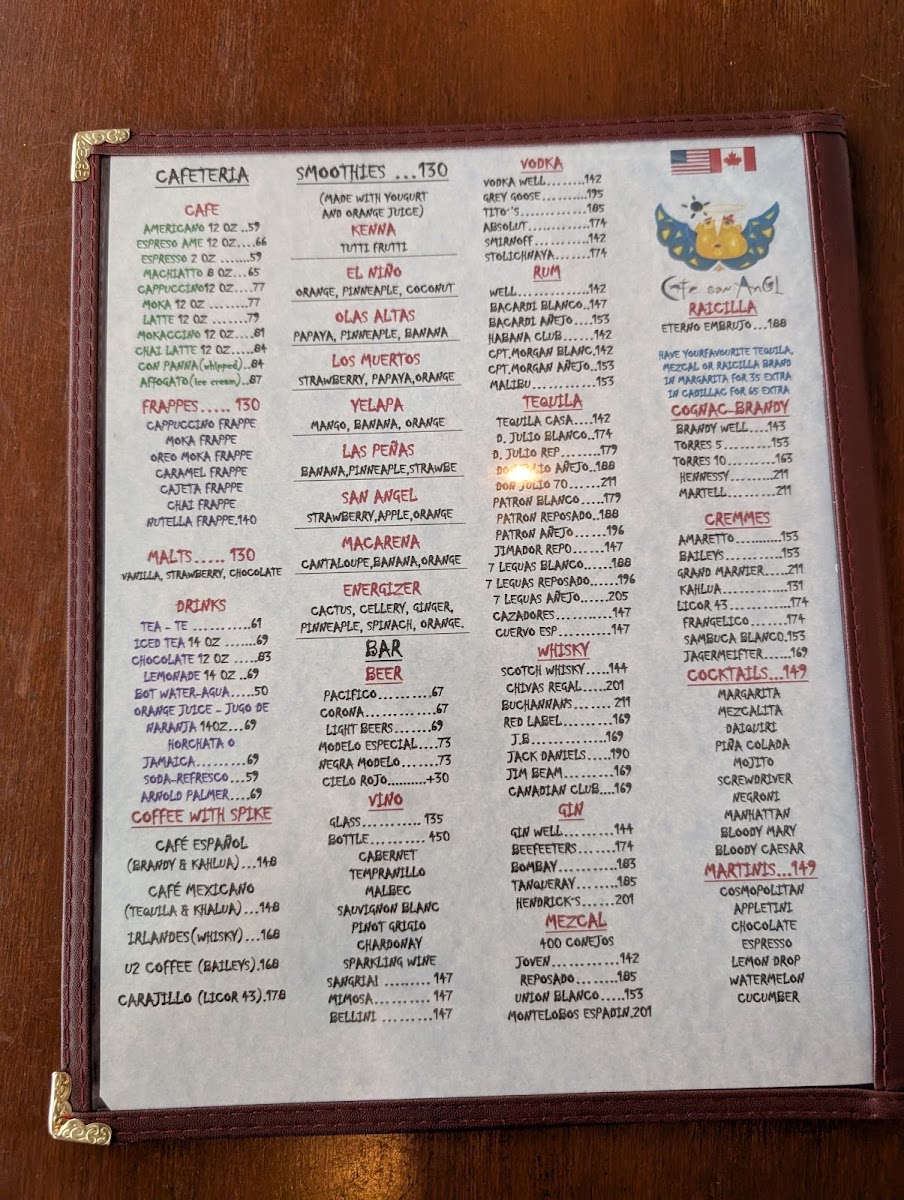 CAFETERIA
CAFE
AMERICANO 12 OZ ..59
ESPRESO AME 12 OZ....66
ESPRESSO 2 OZ .......59
MACHIATTO 8 OZ...65
CAPPUCCINO12 OZ....77
MOKA 12 OZ ........77
LATTE 12 OZ .......79
MOKACCINO 12 OZ....81
CHAI LATTE 12 OZ.....84
CON PANNA(whipped)..84
AFFOGATO(ice cream)..87
FRAPPES..... 130
CAPPUCCINO FRAPPE
MOKA FRAPPE
OREO MOKA FRAPPE
CARAMEL FRAPPE
CAJETA FRAPPE
CHAI FRAPPE
NUTELLA FRAPPE.140
MALTS..... 130
VANILLA, STRAWBERRY, CHOCOLATE
DRINKS
TEA - TE ............61
ICED TEA 14 OZ .......69
CHOCOLATE 12 OZ .....83
LEMONADE 14 OZ ..69
BOT WATER-AGUA.....50
ORANGE JUICE - JUGO DE
NARANJA 14OZ...69
HORCHATA O
JAMAICA.........69
SODA-REFRESCO...59
ARNOLD PALMER....69
COFFEE WITH SPIKE
CAFÉ ESPAÑOL
(BRANDY & KAHLUA)...148
CAFÉ MEXICANO
(TEQUILA & KHALUA)...148
IRLANDES(WHISKY)...168
U2 COFFEE (BAILEYS).168
CARAJILLO (LICOR 43).178
SMOOTHIES ...130
(MADE WITH YOUGURT
AND ORANGE JUICE)
KENNA
TUTTI FRUTTI
EL NIÑO
ORANGE, PINNEAPLE, COCONUT
OLAS ALTAS
PAPAYA, PINNEAPLE, BANANA
LOS MUERTOS
STRAWBERRY, PAPAYA,ORANGE
YELAPA
MANGO, BANANA, ORANGE
LAS PEÑAS
BANANA,PINNEAPLE,STRAWBE
SAN ANGEL
STRAWBERRY,APPLE,ORANGE
MACARENA
CANTALOUPE,BANANA,ORANGE
ENERGIZER
CACTUS, CELLERY, GINGER,
PINNEAPLE, SPINACH, ORANGE.
BAR
BEER
PACIFICO..........67
CORONA............67
LIGHT BEERS.......69
MODELO ESPECIAL....73
NEGRA MODELO.......73
CIELO ROJO..........+30
VINO
GLASS........... 135
BOTTLE........... 450
CABERNET
TEMPRANILLO
MALBEC
SAUVIGNON BLANC
PINOT GRIGIO
CHARDONAY
SPARKLING WINE
SANGRIAI ......... 147
MIMOSA........... 147
BELLINI ..........147
VODKA
VODKA WELL........142
GREY GOOSE..........195
TITO´S.............185
ABSOLUT............174
SMIRNOFF...........142
STOLICHNAYA........174
RUM
WELL..............142
BACARDI BLANCO..147
BACARDI AÑEJO....153
HABANA CLUB......142
CPT.MORGAN BLANC.142
CPT.MORGAN AÑEJO..153
MALIBU............153
TEQUILA
TEQUILA CASA....142
D. JULIO BLANCO..174
D. JULIO REP........179
DON JULIO AÑEJO..188
DON JULIO 70......211
PATRON BLANCO.....179
PATRON REPOSADO..188
PATRON AÑEJO......196
JIMADOR REPO......147
7 LEGUAS BLANCO.....188
7 LEGUAS REPOSADO......196
7 LEGUAS AÑEJO......205
CAZADORES..........147
CUERVO ESP.........147
WHISKY
SCOTCH WHISKY....144
CHIVAS REGAL.....201
BUCHANNANS....... 211
RED LABEL.........169
J.B...............169
JACK DANIELS.....190
JIM BEAM.........169
CANADIAN CLUB....169
GIN
GIN WELL.........144
BEEFEETERS.......174
BOMBAY..........183
TANQUERAY........185
HENDRICK´S.......201
MEZCAL
400 CONEJOS
JOVEN............142
REPOSADO........185
UNION BLANCO.....153
MONTELOBOS ESPADIN.201
Cafe san AnGL
RAICILLA
ETERNO EMBRUJO...188
HAVE YOURFAVOURITE TEQUILA,
MEZCAL OR RAICILLA BRAND
IN MARGARITA FOR 35 EXTRA
IN CADILLAC FOR 65 EXTRA
COGNAC-BRANDY
BRANDY WELL....143
TORRES 5.........153
TORRES 10.........163
HENNESSY.........211
MARTELL..........211
CREMMES
AMARETTO...........153
BAILEYS...........153
GRAND MARNIER.....211
KAHLUA............131
LICOR 43...........174
FRANGELICO.......174
SAMBUCA BLANCO.153
JAGERMEIFTER......169
COCKTAILS...149
MARGARITA
MEZCALITA
DAIQUIRI
PIÑA COLADA
MOJITO
SCREWDRIVER
NEGRONI
MANHATTAN
BLOODY MARY
BLOODY CAESAR
MARTINIS...149
COSMOPOLITAN
APPLETINI
CHOCOLATE
ESPRESSO
LEMON DROP
WATERMELON
CUCUMBER